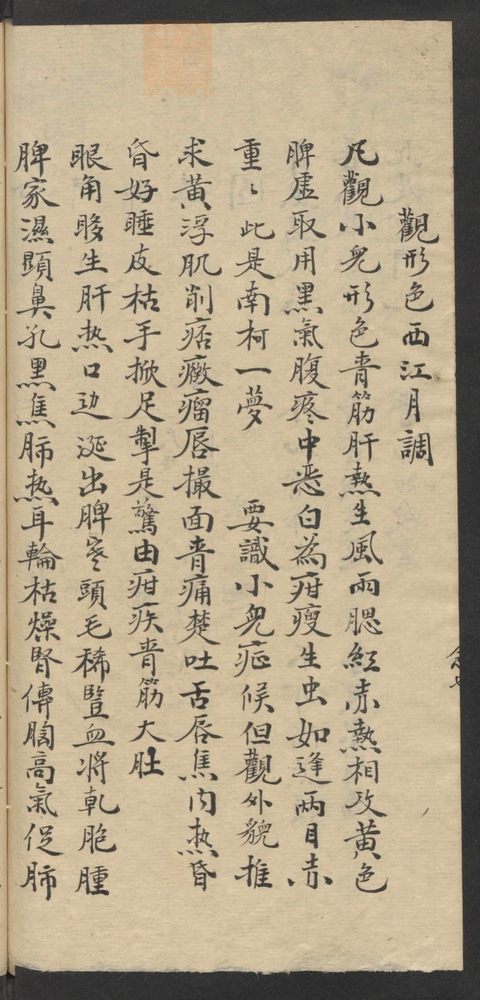 觀形色西江月調
凡觀小兒形色青筋肝熱生風兩腮紅赤熱相攻黃色
脾虛取用黑氣腹疼中惡白為疳瘦生虫如逢兩目赤
重〻此是南柯一夢　要識小兒症候但觀外貌推
求黃浮肌削痞癥瘤唇撮面青痛楚吐舌唇焦內热昏
昏好睡皮枯手掀足掣是驚由疳疾青筋大肚
眼角眵生肝热口边涎出脾寒頭毛稀豎血將乾胞腫
脾家濕顯鼻孔黑焦肺热耳輪枯燥腎傳胸高氣促肺